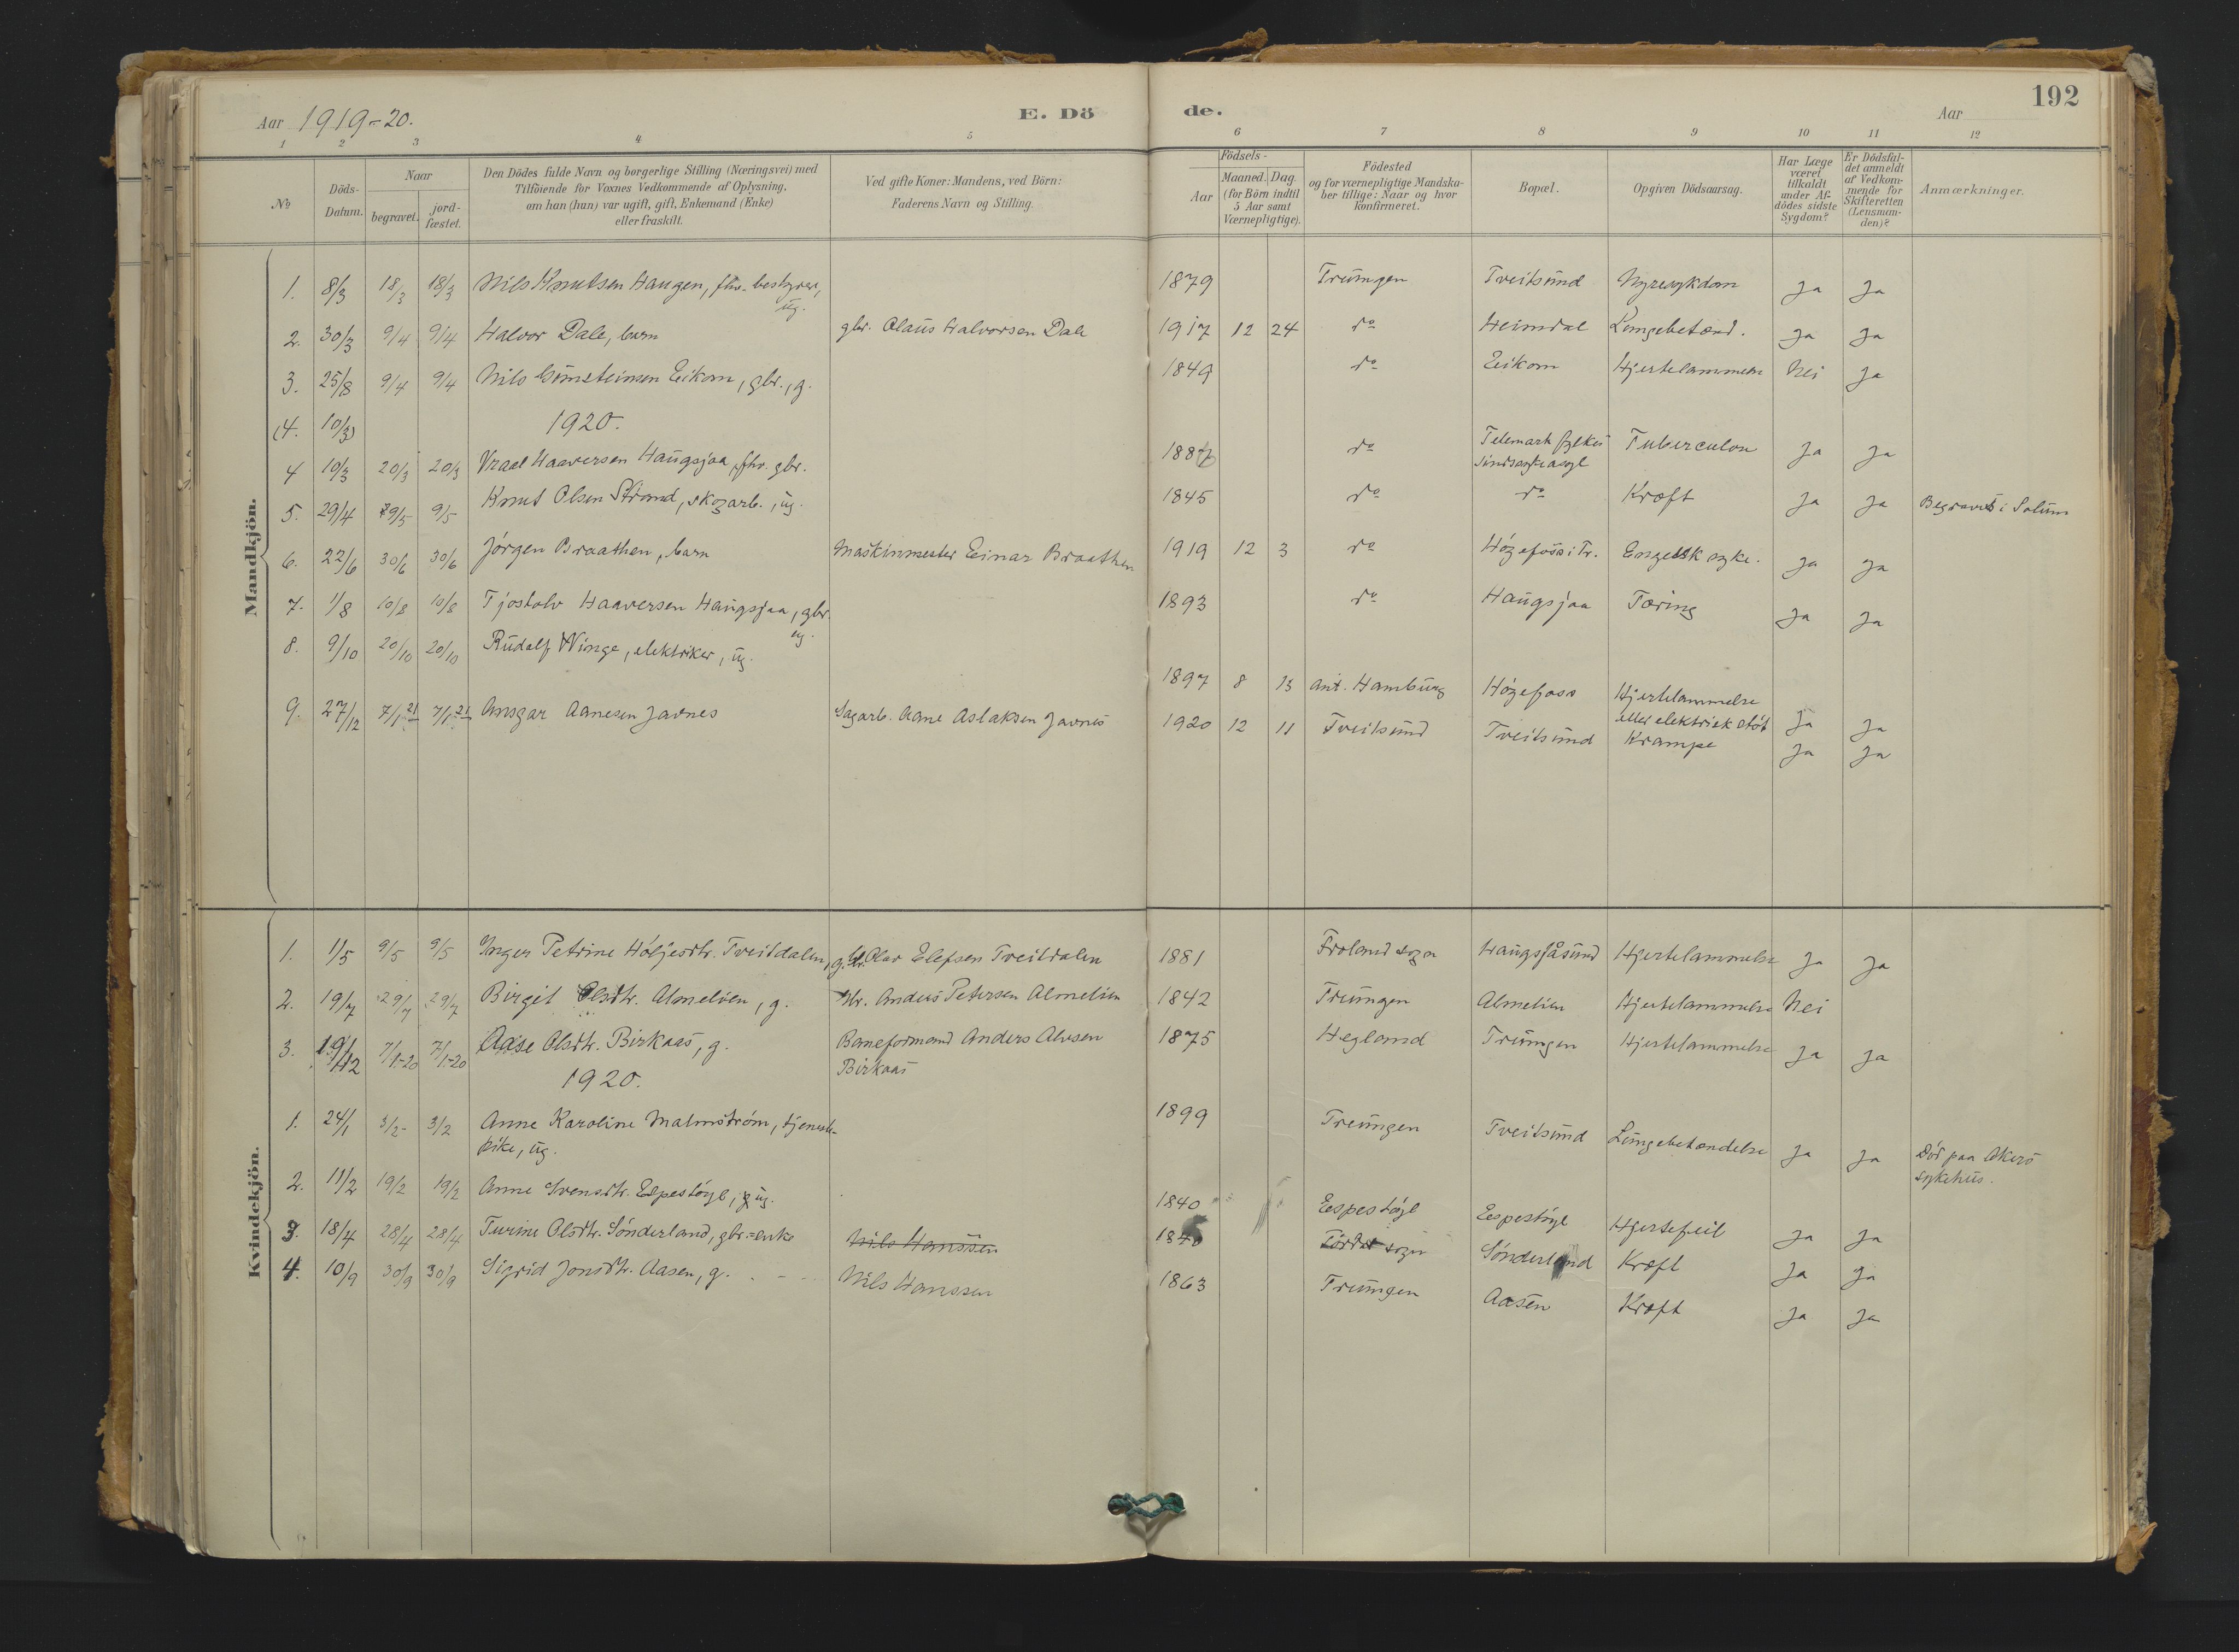 Aar 1919-20.
E. Dö
de.
Aar
192
1 2 3 4 5 6 7 8 9 10 11 12
No
Döds-Datum.
Naar
begravet.
jord-fæstet.
Den Dödes fulde Navn og borgerlige Stilling (Næringsvei) med
Tilföiende for Voxnes Vedkommende af Oplysning,
om han (hun) var ugift, gift, Enkemand (Enke)
eller fraskilt.
Ved gifte Koner: Mandens, ved Börn:
Faderens Navn og Stilling.
Födsels-
Aar
Maaned. Dag.
(for Börn indtil
5 Aar samt
Værnepligtige).
Födested
og for værnepligtige Mandska-
ber tillige: Naar og hvor
konfirmeret.
Bopæl.
Opgiven Dödsaarsag.
Har Læge
været
tilkaldt
under Af-
dödes sidste
Sygdom?
Er Dödsfal-
det anmeldt
af Vedkom-
mende for
Skifteretten
(Lensman-
den)?
Anmærkninger.
Mandkjön.
1. 8/3 18/3 18/3 Nils Knutsen Haugen, fhv. bestyrer, ug. 1879 Treungen Tveitsund Nyresykdom Ja Ja
2. 30/3 9/4 9/4 Halvor Dale, barn gbr. Olaus Halvorsen Dale 1917 12 24 do Heimdal Lungebetænd. Ja Ja
3. 25/8 9/4 9/4 Nils Gunsteinsen Eikom, gbr., g. 1849 do Eikom Hjertelammelse Nei Ja
(4. 10/3) 1920.
4 10/3 20/3 20/3 Vraal Haaversen Haugsjaa, fhv. gbr. 188 do Telemark fylkes
sindssykeasyl Tuberculose Ja Ja
5. 29/4 9/5 9/5 Knut Olsen Strand, skogarb., ug. 1845 do do Kræft Ja Ja Begravet i Solum
6. 22/6 30/6 30/6 Jörgen Braathen, barn Maskinmester Einar Braathen 1919 12 3 do Högefoss i Tr. Engelsk syke. Ja Ja
7. 1/8 10/8 10/8 Tjostolv Haaversen Haugsjaa, gbr. ug. 1893 do Haugsjaa Tæring Ja Ja
8. 9/10 20/10 20/10 Rudolf Winge, elektriker, ug. 1897 8 13 ant. Hamburg Högefoss Hjertelammelse
eller elektrisk stöt Ja Ja
9. 27/12 7/1-21 7/1-21 Ansgar Aanesen Javnes Sagarb. Aane Aslaksen Javnes 1920 12 11 Tveitsund Tveitsund Krampe Ja Ja
Kvindekjön.
1. 1/5 9/5 9/5 Inger Petrine Höljesdtr. Tveitdalen, g. Olav Elefsen Tveitdalen 1881 Froland sogn Haugsjåsund Hjertelammelse Ja Ja
2. 19/7 29/7 29/7 Birgit Olsdtr. Almelien, g. Anders Petersen Almelien 1842 Treungen Almelien Hjertelammelse Nei
3. 19/12 7/1-20 7/1-20 Aase Olsdtr. Birkaas, g. Baneformand Anders Alvsen
Birkaas 1875 Hegland Treungen Hjertelammelse Ja Ja
1920.
1. 24/1 3/2 3/2 Anne Karoline Malmström, tjeneste-
pike, ug. 1899 Treungen Tveitsund Lungebetændelse Ja Ja Död paa Akers
sykehus.
2. 11/2 19/2 19/2 Anne Svensdtr. Espestöyl, ug. 1840 Espestöyl Espestöyl Hjertefeil Ja Ja
3. 18/4 28/4 28/4 Turine Olsdtr. Sönderland, gbr.-enke Nils Hanssen 1840 Tördal sogn Sönderland Kræft Ja Ja
4. 10/9 30/9 30/9 Sigrid Jonsdtr. Aasen, g. Nils Hanssen 1863 Treungen Aasen Kræft Ja Ja